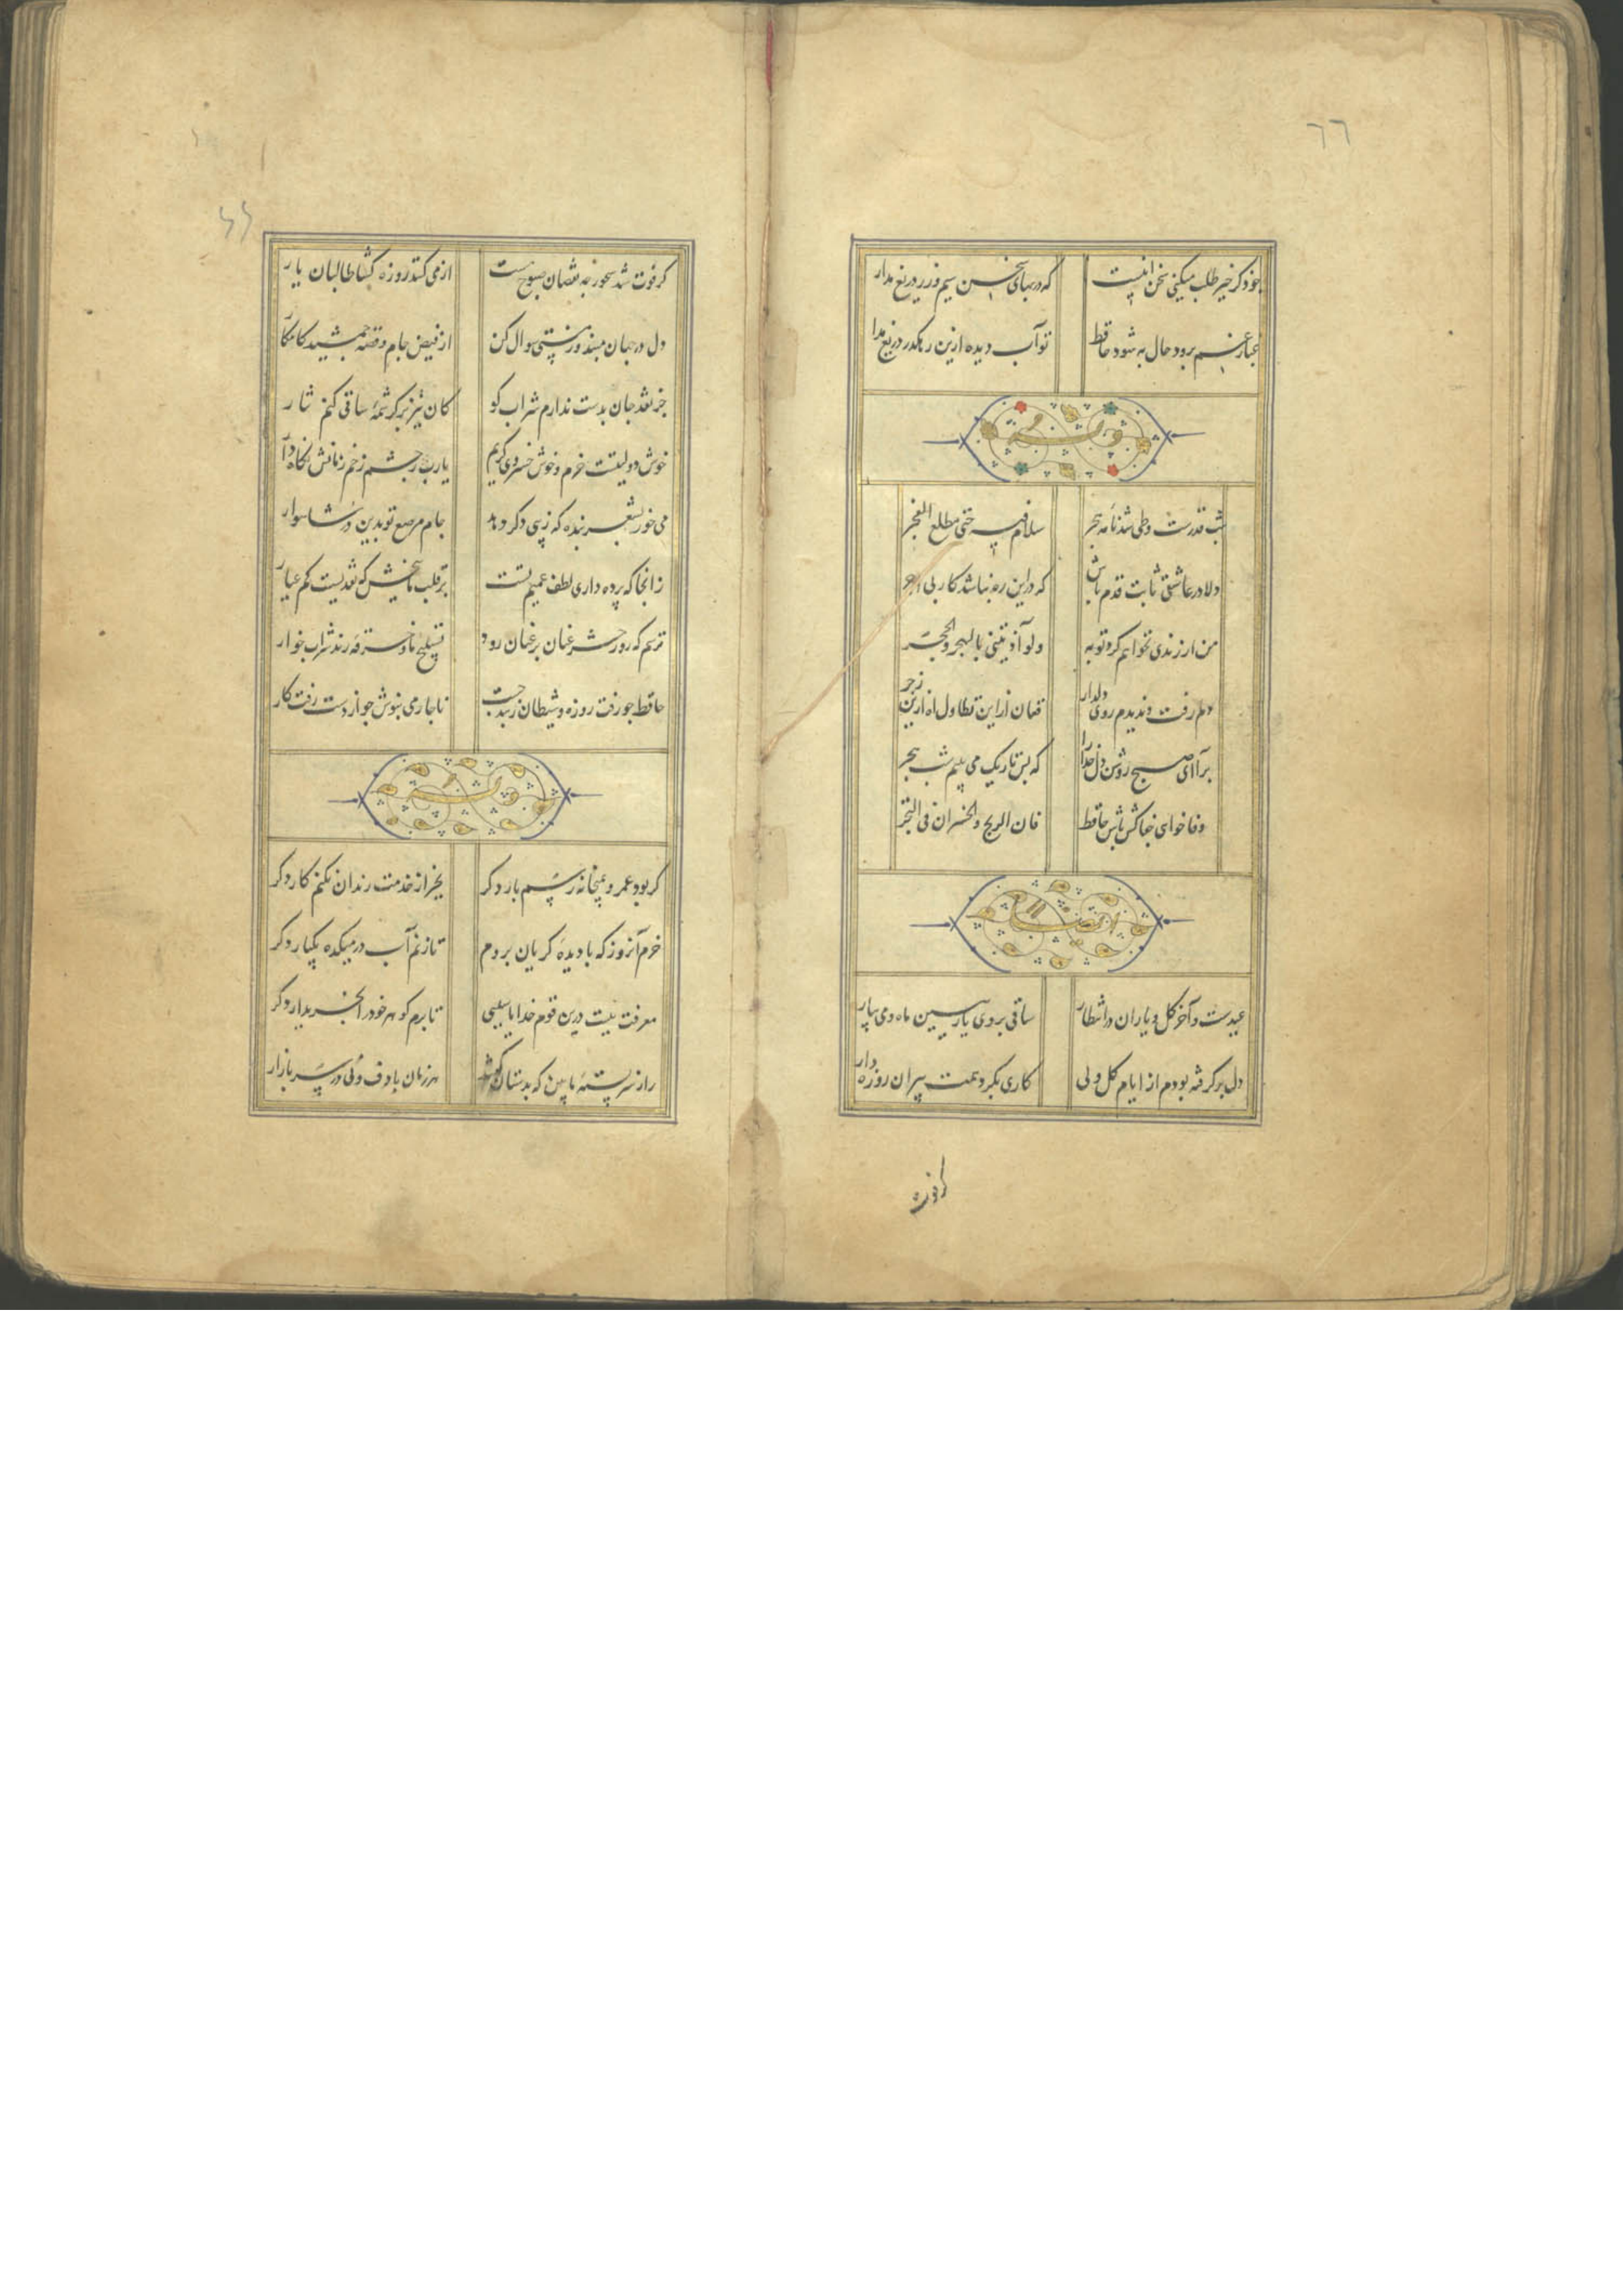 ٦٦
چو ذکر خیر طلب میکنی سخن اینست که در بهای سخن سیم و زر دریغ مدار
غبار غم برود حال به شود حافظ تو آب دیده ازین رهگذر دریغ مدار
وله
شب قدرست و طی شد نامه هجر سلام فیه حتی مطلع الفجر
دلا در عاشقی ثابت قدم باش که در این ره نباشد کار بی اجر
من از رندی نخواهم کرد توبه ولو آذیتنی بالهجر والحجر
دلم رفت و ندیدم روی دلدار فغان از این تطاول اه ازین زجر
برآ ای صبح روشن دل خدا را که بس تاریک می بینم شب هجر
وفا خواهی جفاکش باش حافظ فان الربح والخسران فی التجر
ایضا
عیدست و آخر گل و یاران در انتظار ساقی بروی یار ببین ماه و می بیار
دل برگرفته بودم از ایام گل ولی کاری بکرد همت پیران روزه دار
گر فوت
گر فوت شد سحور چه نقصان صبوح هست از می کنند روزه گشا طالبان یار
دل در جهان مبند و ز مستی سوال کن از فیض جام و قصه جمشید کامکار
جز نقد جان بدست ندارم شراب کو کان نیز بر کرشمه ساقی کنم نثار
خوش دولتیست خرم و خوش خسروی کریم یارب ز چشم زخم زمانش نگاه دار
می خور بشعر بنده که زیبی دگر دهد جام مرصع تو بدین در شاهوار
زانجا که پرده داری لطف عمیم تست بر قلب ما ببخش که نقدیست کم عیار
ترسم که روز حشر عنان بر عنان رود تسبیح ما و خرقه رند شراب خوار
حافظ چو رفت روزه و ناچار می بنوش چو از دست رفت کار
وله
گر بود عمر و بمیخانه رسم بار دگر بجز از خدمت رندان نکنم کار دگر
خرم آنروز که با دیده گریان بروم تا زنم آب در میکده یکبار دگر
معرفت نیست درین قوم خدایا سببی تا برم گوهر خود را بخریدار دگر
راز سربسته ما بین که بدستان گفتند هر زمان با دف و نی در سر بازار